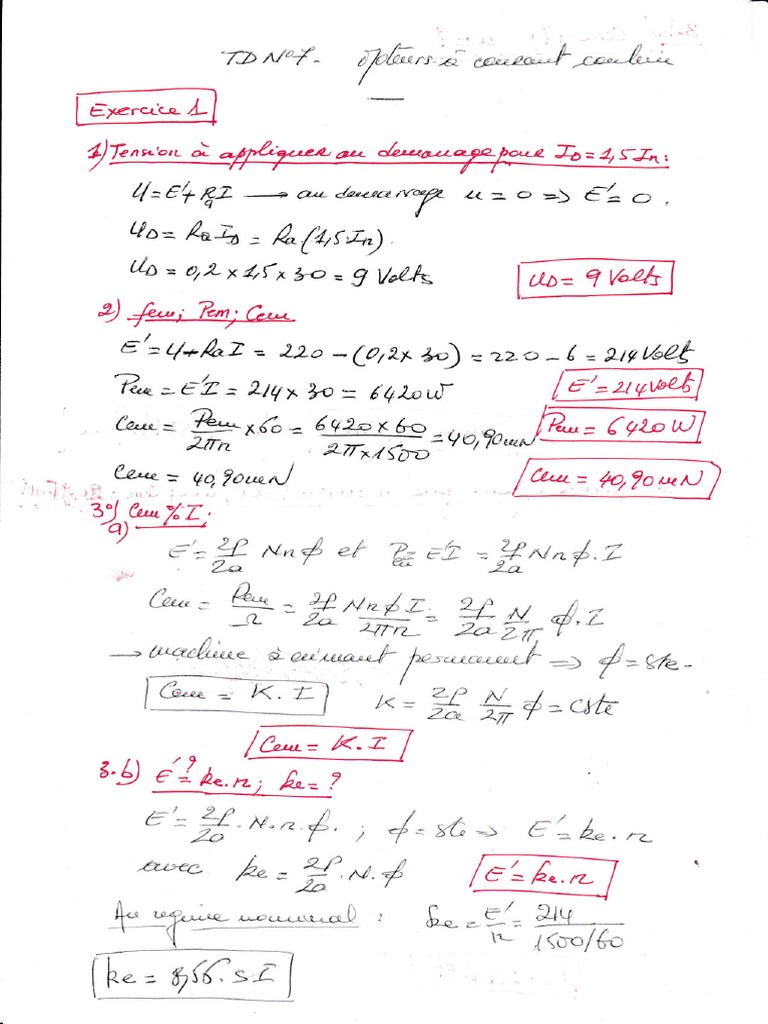 TD N°7. Moteurs à courant continu
Exercice 1
1) Tension à appliquer au démarrage pour ID = 1,5 In:
U = E' + RaI → au démarrage n = 0 => E' = 0.
UD = RaID = Ra(1,5In).
UD = 0,2 x 1,5 x 30 = 9 Volts
UD = 9 Volts
2) fem; Pem; Cem
E' = U + RaI = 220 - (0,2 x 30) = 220 - 6 = 214 Volts
Pem = E'I = 214 x 30 = 6420 W
E' = 214 Volts
Cem = Pem/2πn x 60 = 6420 x 60/2π x 1500 = 40,90 mN
Pem = 6420 W
Cem = 40,90 mN
Cem = 40,90 mN
3°) Cem % I;
a)
E' = 2P/2a Nnϕ et Pem = E'I = 2P/2a Nnϕ.I
Cem = Pem/Ω = 2P/2a NnϕI/2πn = 2P/2a N/2π ϕ.I
→ machine à aimant permanent => ϕ = ste.
Cem = K.I
K = 2P/2a N/2π ϕ = cste
Cem = K.I
3.b) E' =? ke.n; ke = ?
E' = 2P/2a.N.n.ϕ. ; ϕ = ste => E' = ke.n
avec ke = 2P/2a.N.ϕ
E' = ke.n
Au regime nominal : ke = E'/n = 214/1500/60
ke = 8,56. SI